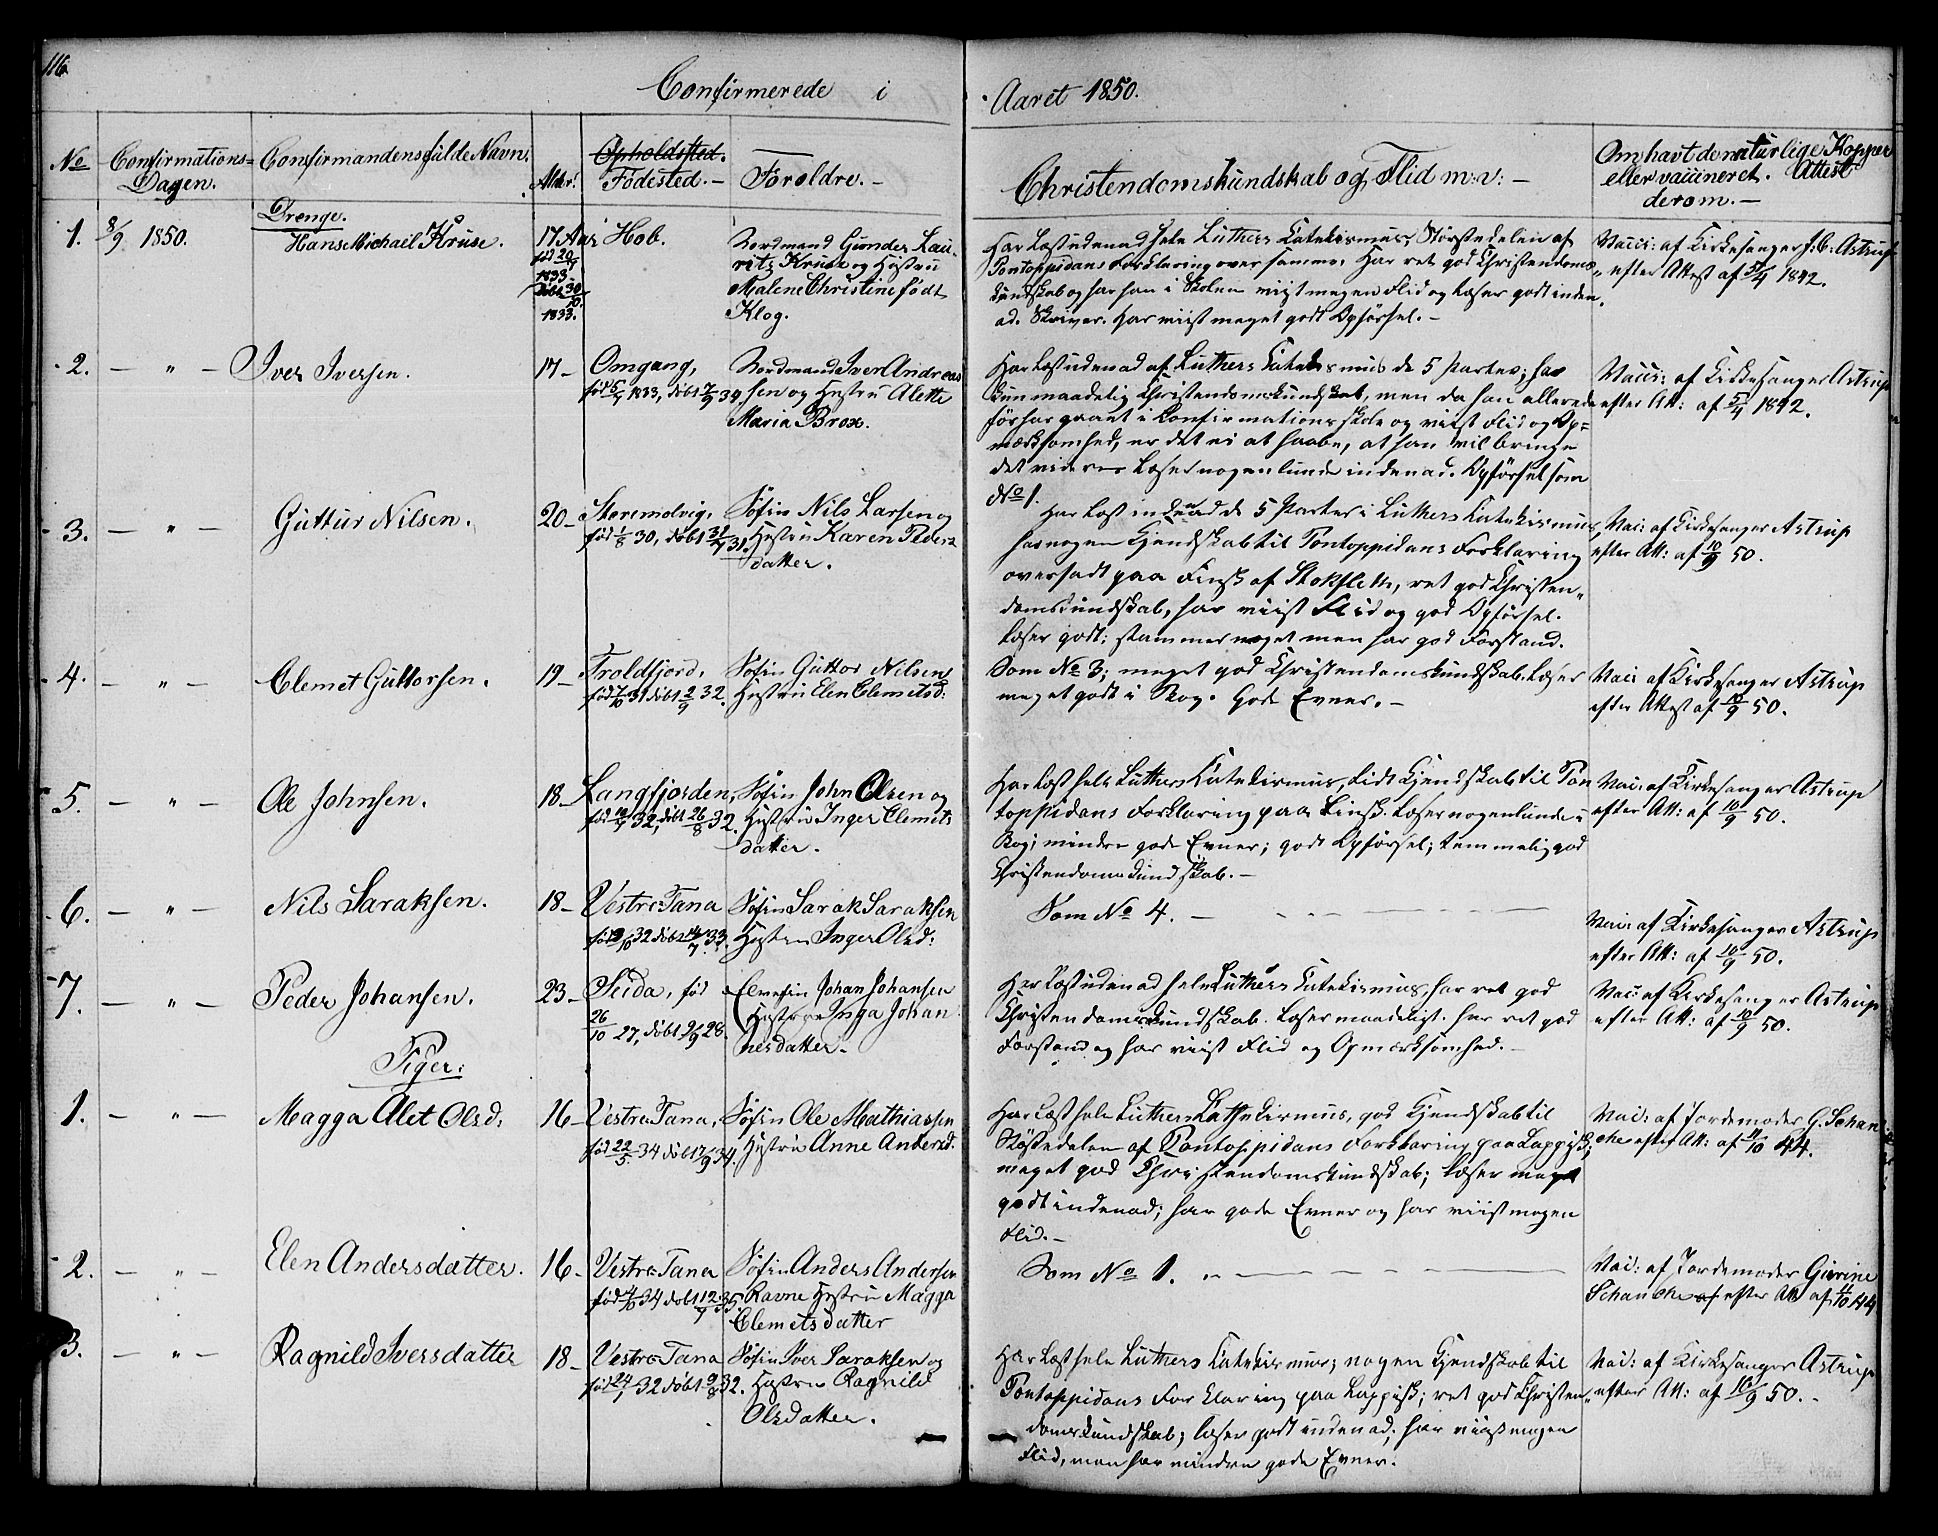 116
Confirmerede i Aaret 1850.
No Confirmations- Dagen. Confirmandens fulde Navn. Alder. Opholdsted. Fødested. — Forældre. — Christendomskundskab og Flid m: v: — Om havt de naturlige Kopper eller vaccineret. Attest derom. —
Drenge.
1. 8/9 1850. Hans Michail Kruse. 17 Aar Hob.
født 20/ 1833. døbt 30/10 1833.
Nordmand Günder Lau-
ritz Kruse og Hustru
Malene Christine født
Klog.
Har læst udenad hele Luthers Katekismus, Størstedelen af
Pontoppidans Forklaring over samme. Har ret god Christendoms-
kundskab og har han i Skolen viist megen Flid og læser godt inden-
ad. Skriver. Har viist meget godt Opførsel. —
Vacci: af Kirkesanger J. C. Astrup
efter Attest af 5/4 1842.
2. — " — Iver Iversen. 17 — Omgang,
født 5/ 1833, døbt 7/9 34
Nordmand Iver Andrea-
sen og Hustru Alette
Maria Brox.
Har læst udenad af Luthers Katekismus de 5 Parter; har
kun maadelig Christendomskundskab, men da han allerede
før har gaaet i Confirmationsskole og viist Flid og Op-
mærksomhed, er det ei at haabe, at han vil bringe
det videre. Læser nogenlunde indenad. Opførsel som
No 1.
Vacci: af Kirkesanger Astrup
efter Att: af 5/4 1842.
3. — " — Guttur Nilsen. 20 — Steremolvig,
født 1/8 30, døbt 31/7 31.
Søfin Nils Larsen og
Hustru Karen Peders-
datter.
Har læst indenad de 5 Parter i Luthers Katekismus,
har nogen Kjendskab til Pontoppidans Forklaring
oversadt paa Finsk af Stokfleth, ret god Christen-
domskundskab, har viist Flid og god Opførsel.
Læser godt; stammer noget men har god Forstand.
Vac: af Kirkesanger Astrup
efter Att: af 10/9 50.
4. — " — Clemet Guttorsen. 19 — Troldfjord,
født 7/10 31 døbt 2/9 32.
Søfin Guttor Nilsen
Hustru Elen Clemetsd:
Som No 3; meget god Christendomskundskab. Læser
meget godt i Bog. Gode Evner. —
Vac: af Kirkesanger Astrup
efter Attest af 10/9 50.
5. — " — Ole Johnsen. 18 — Langfjorden,
født 32, døbt 26/8 32.
Søfin John Olsen og
Hustru Inger Clemets
datter.
Har læst hele Luthers Katekismus, lidt Kjendskab til Pon
toppidans Forklaring paa Finsk. Læser nogenlunde i
Bog; mindre gode Evner; godt Opførsel; temmelig god
Christendomskundskab. —
Vac: af Kirkesanger Astrup
efter Att: af 10/9 50.
6. — " — Nils Saraksen. 18 — Vestre Tana
født /10 32 døbt 14/7 33.
Søfin Sarak Saraksen
Hustru Inger Olsd:
Som No 4. —
Vac: af Kirkesanger Astrup
efter Att: af 10/9 50.
7. — " — Peder Johansen. 23 — Seida, født
26/10 27, døbt 2/9 28.
Elvefin Johan Johansen
Hustru Inga Johan
nesdatter.
Har læst udenad hele Luthers Katekismus, har ret god
Christendomskundskab. Læser maadeligt. har ret god
Forstand og har viist Flid og Opmærksomhed. —
Vac: af Kirkesanger Astrup
efter Att: af 10/9 50.
Piger:
1. — " — Magga Alet Olsd: 16 — Vestre Tana,
født 22/5 34 døbt 7/9 34.
Søfin Ole Mathiassen
Hustru Anne Andersd.
Har læst hele Luthers Kathekismus, god Kjendskab til
Støstedelen af Pontoppidans Forklaring paa Lappisk;
meget god Christendomskundskab; læser meget
godt indenad; har gode Evner og har viist megen
Flid. —
Vac: af Jordemoder G. Schan
che efter Att: af 11/10 44.
2. — " — Elen Andersdatter. 16 — Vestre Tana
født 4/10 34 døbt 12/7 35.
Søfin Anders Andersen
Ravne Hustru Magga
Clemetsdatter
Som No 1. —
Vac: af Jordemoder Gierine
Schanche af efter Att af /10 44
3. — " — Ragnild Iversdatter 18 — Vestre Tana
født 24/ 32 døbt 9/8 32.
Søfin Iver Saraksen og
Hustru Ragnild
Olsdatter.
Har læst hele Luthers Katekismus; nogen Kjendskab til
Pontoppidans Forklaring paa Lappisk; ret god Christen-
domskundskab; læser godt indenad; har viist megen
Flid, men har mindre gode Evner.
Vac: af Kirkesanger Astrup
efter Att: af 10/9 50.